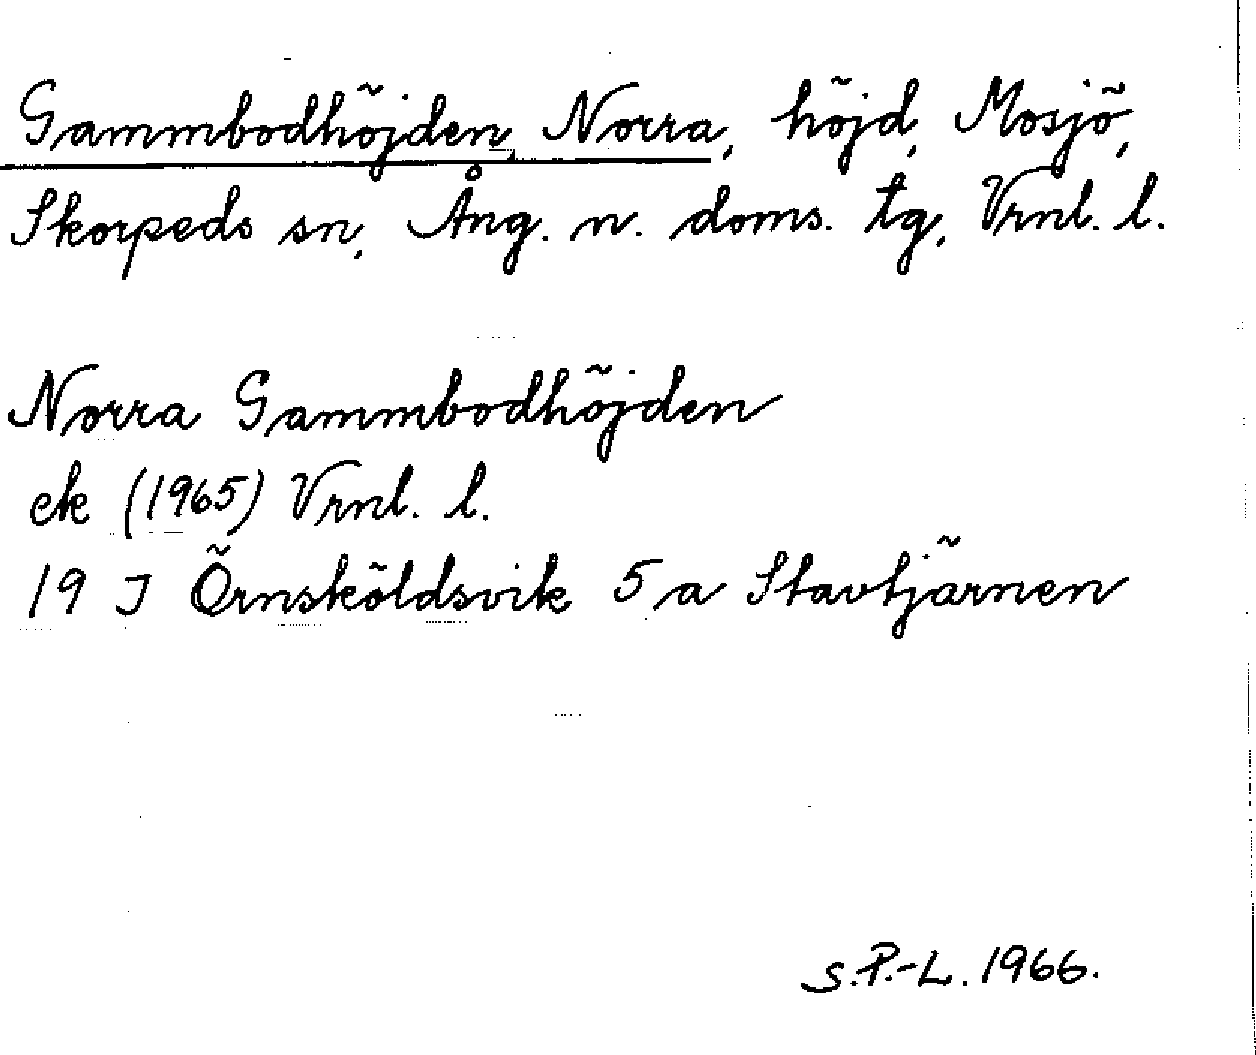 Gammbodhöjden, Norra, höjd, Mosjö,
Skorpeds sn, Ång. n. doms. tg, Vrnl. l.
Norra Gammbodhöjden
ek (1965) Vrnl. l.
19 J Örnsköldsvik 5 a Stavtjärnen
S.P.-L. 1966.